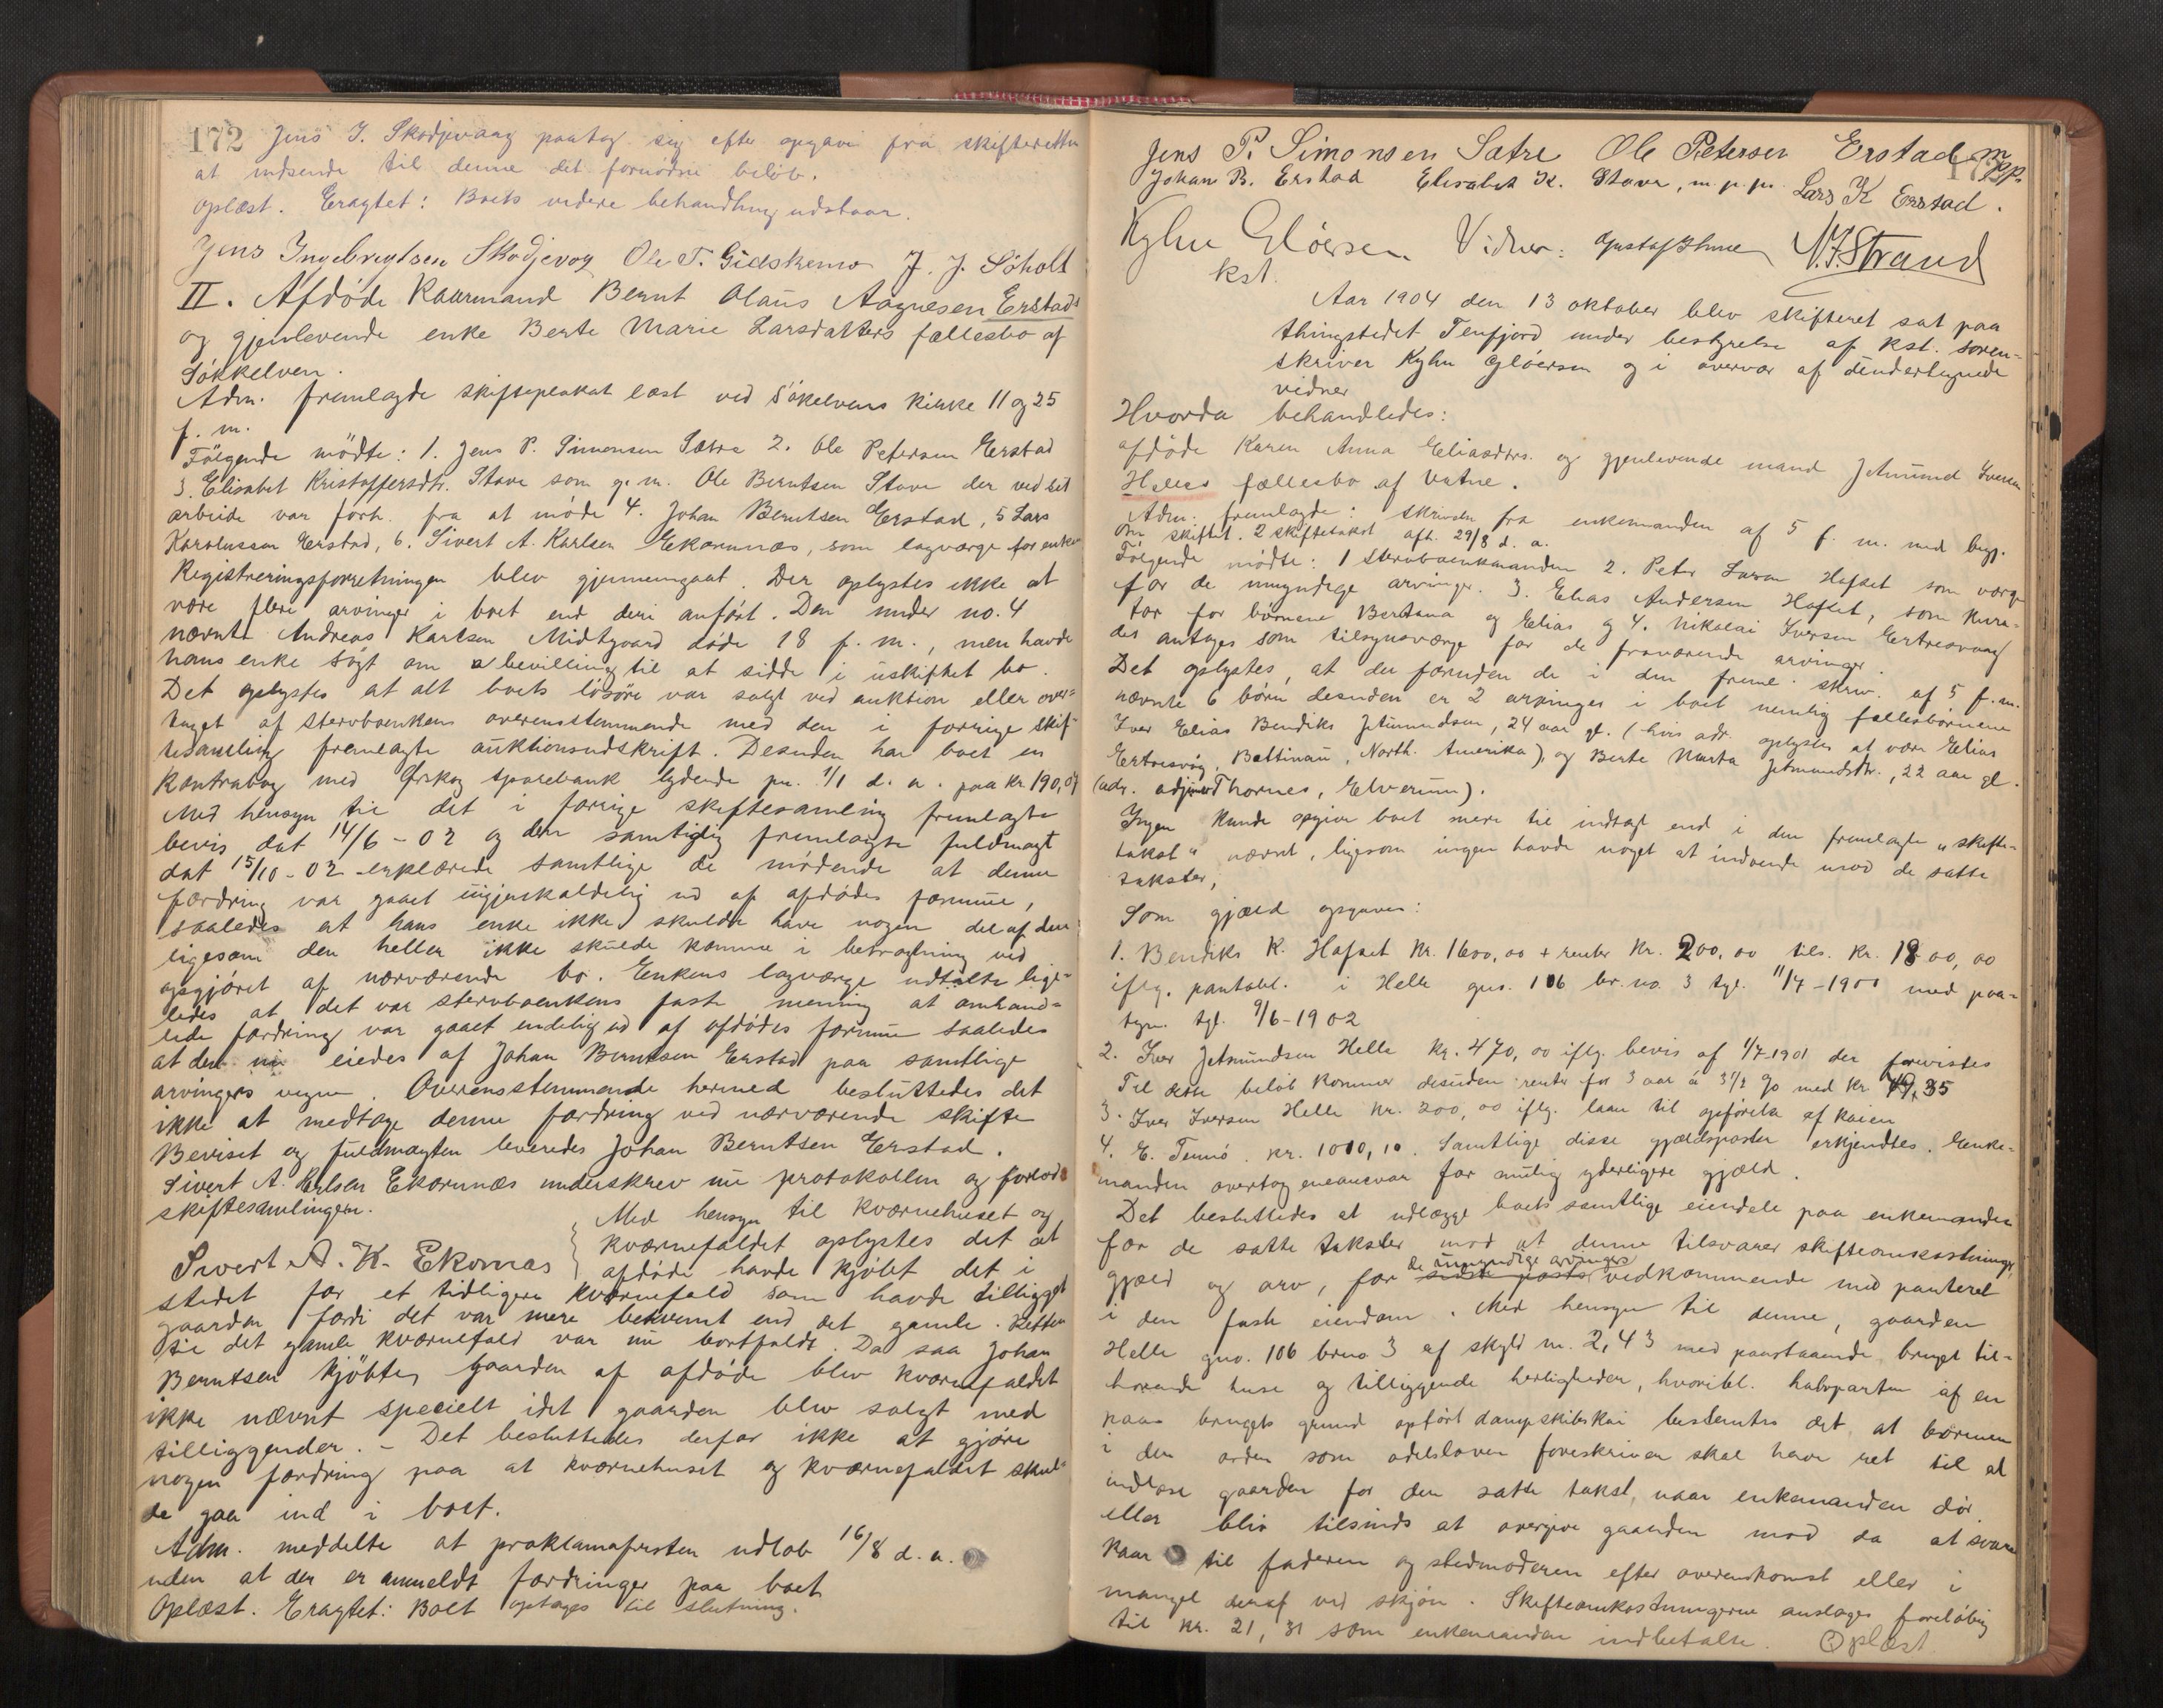 172 Jens I. Skodjevaag paatog sig efter opgave fra skifteretten
at indsende til denne det fornødne beløb.
Oplæst. Eragtet: Boets videre behandling udstaar.
Jens Ingebregtsen Skodjevog Ole T. Gidskemo J. J. Søholt
II. Afdøde Kaarmand Bernt Olaus Aagnesen Erstads
og gjenlevende enke Berte Marie Larsdatters fællesbo af
Søkkelven.
Adm. fremlagde skifteplakat læst ved Søkelvens kirke 11 og 25
f. m.
Følgende mødte: 1. Jens P. Simonsen Sætre 2. Ole Petersen Erstad
3. Elisabet Kristoffersdtr. Stave som g. m. Ole Berntsen Stave der ved sit
arbeide var forh. fra at møde 4. Johan Berntsen Erstad, 5 Lars
Karolussen Erstad, 6. Sivert A. Karlsen Ekornnæs, som lagværge for enken
Registreringsforretningen blev gjennemgaat. Der oplystes ikke at
være flere arvinger i boet end deri anført. Den under no. 4
nævnte Andreas Karlsen Midtgaard døde 18 f. m., men havde
hans enke søgt om bevilling til at sidde i uskiftet bo.
Det oplystes at alt boets løsøre var solgt ved auktion eller over-
taget af stervboenken overensstemmende med den i forrige skif-
tesamling fremlagte auktionsudskrift. Desuden har boet en
kontrabog med Ørskog sparebank lydende pr. 1/1 d. a. paa kr. 190,07
Med hensyn til det i forrige skiftesamling fremlagte
bevis dat 14/6 - 02 og den samtidig fremlagte fuldmagt
dat 15/10 - 02 erklærede samtlige de mødende at denne
fordring var gaaet uigjenkaldelig ud af afdødes formue,
saaledes at hans enke ikke skulde have nogen del af den
ligesom den heller ikke skulde komme i betragtning ved
opgjøret af nærværende bo. Enkens lagværge udtalte lige-
ledes at det var stervboenkens faste mening at omhand-
lede fordring var gaaet endelig ud af afdødes formue saaledes
at den nu eiedes af Johan Berntsen Erstad paa samtlige
arvingers vegne. Overensstemmende hermed besluttedes det
ikke at medtage denne fordring ved nærværende skifte
Beviset og fuldmagten leveredes Johan Berntsen Erstad.
Sivert A. Karlsen Ekornnæs underskrev nu protokollen og forlod
skiftesamlingen.
Sivert A. K. Ekornas
Med hensyn til kværnehuset og
kværnefaldet oplystes det at
afdøde havde kjøbt det i
stedet for et tidligere kværnefald som havde tilligget
gaarden fordi det var mere bekvemt end det gamle. Retten
til det gamle kværnefald var nu bortfaldt. Da saa Johan
Berntsen kjøbte gaarden af afdøde blev kværnefaldet
ikke nævnt specielt idet gaarden blev solgt med
tilliggender. - Det besluttedes derfor ikke at gjøre
nogen fordring paa at kværnehuset og kværnefaldet skul-
de gaa ind i boet.
Adm. meddelte at proklamafristen udløb 16/8 d. a.
uden at der er anmeldt fordringer paa boet
Oplæst. Eragtet: Boet optages til slutning.
Jens P. Simonsen Satre Ole Petersen Erstad m pp.
Johan B. Erstad Elisabet K. Stave, m. p. p. Lars K Erstad.
Kyhn Gløersen Vidner: Gustaf N. F. Strand
kst.
Aar 1904 den 13 oktober blev skifteret sat paa
thingstedet Tenfjord under bestyrelse af kst. soren-
skriver Kyhn Gløersen og i overvær af undertegnede
vidner
Hvorda behandledes:
afdøde Karen Anna Eliasdtrs. og gjenlevende mand Jetmund Iversen
Helles fællesbo af Vatne.
Adm. fremlagde: skrivelse fra enkemanden af 5 f. m. med begj.
om skiftet. 2 skiftetakst afh. 29/8 d. a.
Følgende mødte: 1 stervboenkemanden 2. Peter Larsen Hofset som værge
for de umyndige arvinger. 3. Elias Andersen Hofset, som kura-
tor for børnene Bertana og Elias og 4. Nikolai Iversen Ertresvaag
der antages som tilsynsværge for de fraværende arvinger.
Det oplystes, at der foruden de i den freml. skriv. af 5 f. m.
nævnte 6 børn desuden er 2 arvinger i boet nemlig fællesbørnene
Iver Elias Bendiks Jetmundsen, 24 aar gl. (hvis adr. oplystes at være Elias
Ertresvog, Bottinau, North. Amerika), og Berte Marta Jetmundsdtr., 22 aar gl.
(adr. Thornes, Elverum).
Ingen kunde opgive boet mere til indtægt end i den fremlagte "skifte-
takst" nævnt, ligesom ingen havde noget at indvende mod de satte
takster,
Som gjæld opgaves:
1. Bendiks K. Hofset kr. 1600,00 + renter kr. 200,00 tils. kr. 1800,00
iflg. pantobl. i Helle gno. 106 br. no. 3 tgl. 11/4 - 1900 med paa-
tegn. tgl. 9/6 - 1902
2. Iver Jetmundsen Helle kr. 470,00 iflg. bevis af 1/7 1901 der forevistes
Til dette beløb kommer desuden renter for 3 aar á 3 1/2 % med kr. 49,35
3. Iver Iversen Helle kr. 200,00 iflg. laan til opførelse af kaien
4. E. Tennø. kr. 1010,10. Samtlige disse gjældsposter erkjendtes. Enke-
manden overtog eneansvar for mulig yderligere gjæld.
Det besluttedes at udlægge boets samtlige eiendele paa enkemanden
for de satte takster mod at denne tilsvarer skifteomkostninger,
gjæld og arv, for de umyndige arvinger vedkommende med panteret
i den faste eiendom. Med hensyn til denne, gaarden
Helle gno. 106 brno 3 af skyld m. 2,43 med paastaaende, bruget til-
hørende huse og tilliggende herligheder, hvoribl. halvparten af en
paa brugets grund opført dampskibskai bestemtes det, at børnene
i den orden som odelsloven foreskriver skal have ret til at
indløse gaarden for den satte takst, naar enkemanden dør
eller bliv tilsinds at overgive gaarden mod da at svare
kaar til faderen og stedmoderen efter overenskomst eller i
mangel deraf ved skjøn. Skifteomkostningerne anslages foreløbig
til kr. 21,31 som enkemanden indbetalte. Oplæst